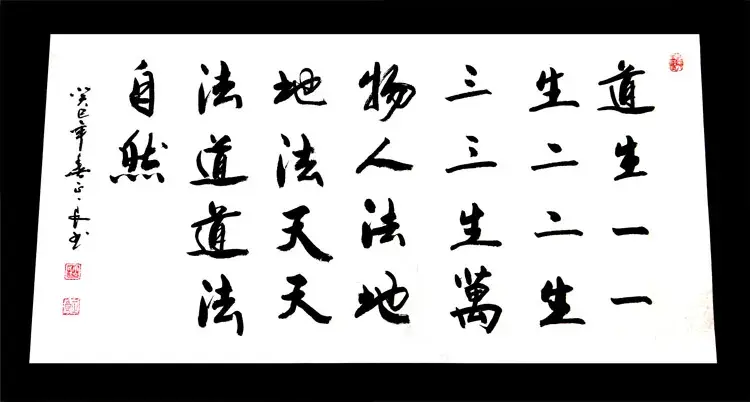 道生一一
生二二生
三三生萬
物人法地
地法天天
法道道法
自然
癸巳年春正月書